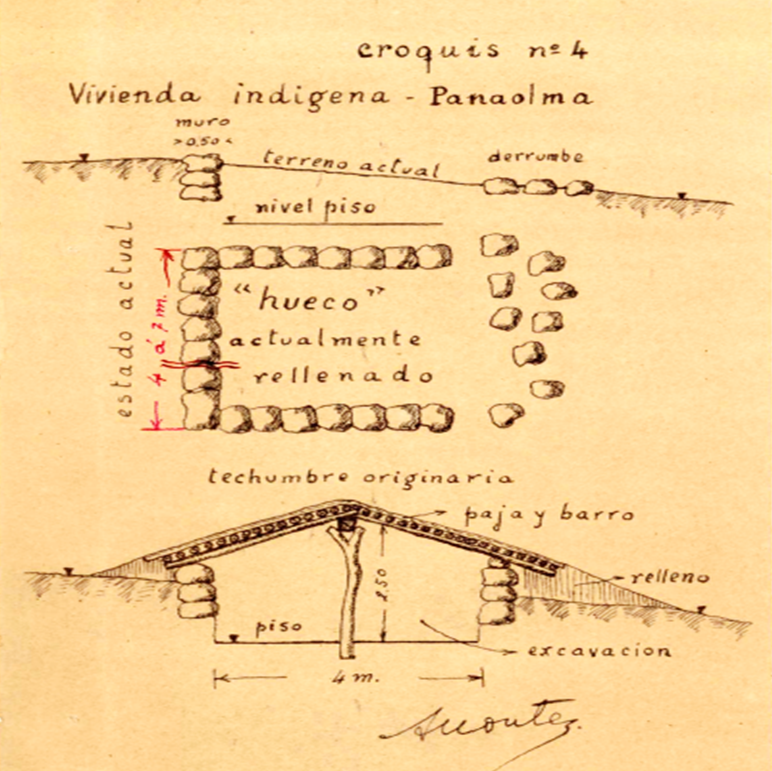 croquis nº 4
Vivienda indigena - Panaolma
muro
>0.50<
terreno actual
derrumbe
nivel piso
estado actual
4 á 7 m.
"hueco"
actualmente
rellenado
techumbre originaria
paja y barro
2.50
relleno
piso
excavacion
4 m.